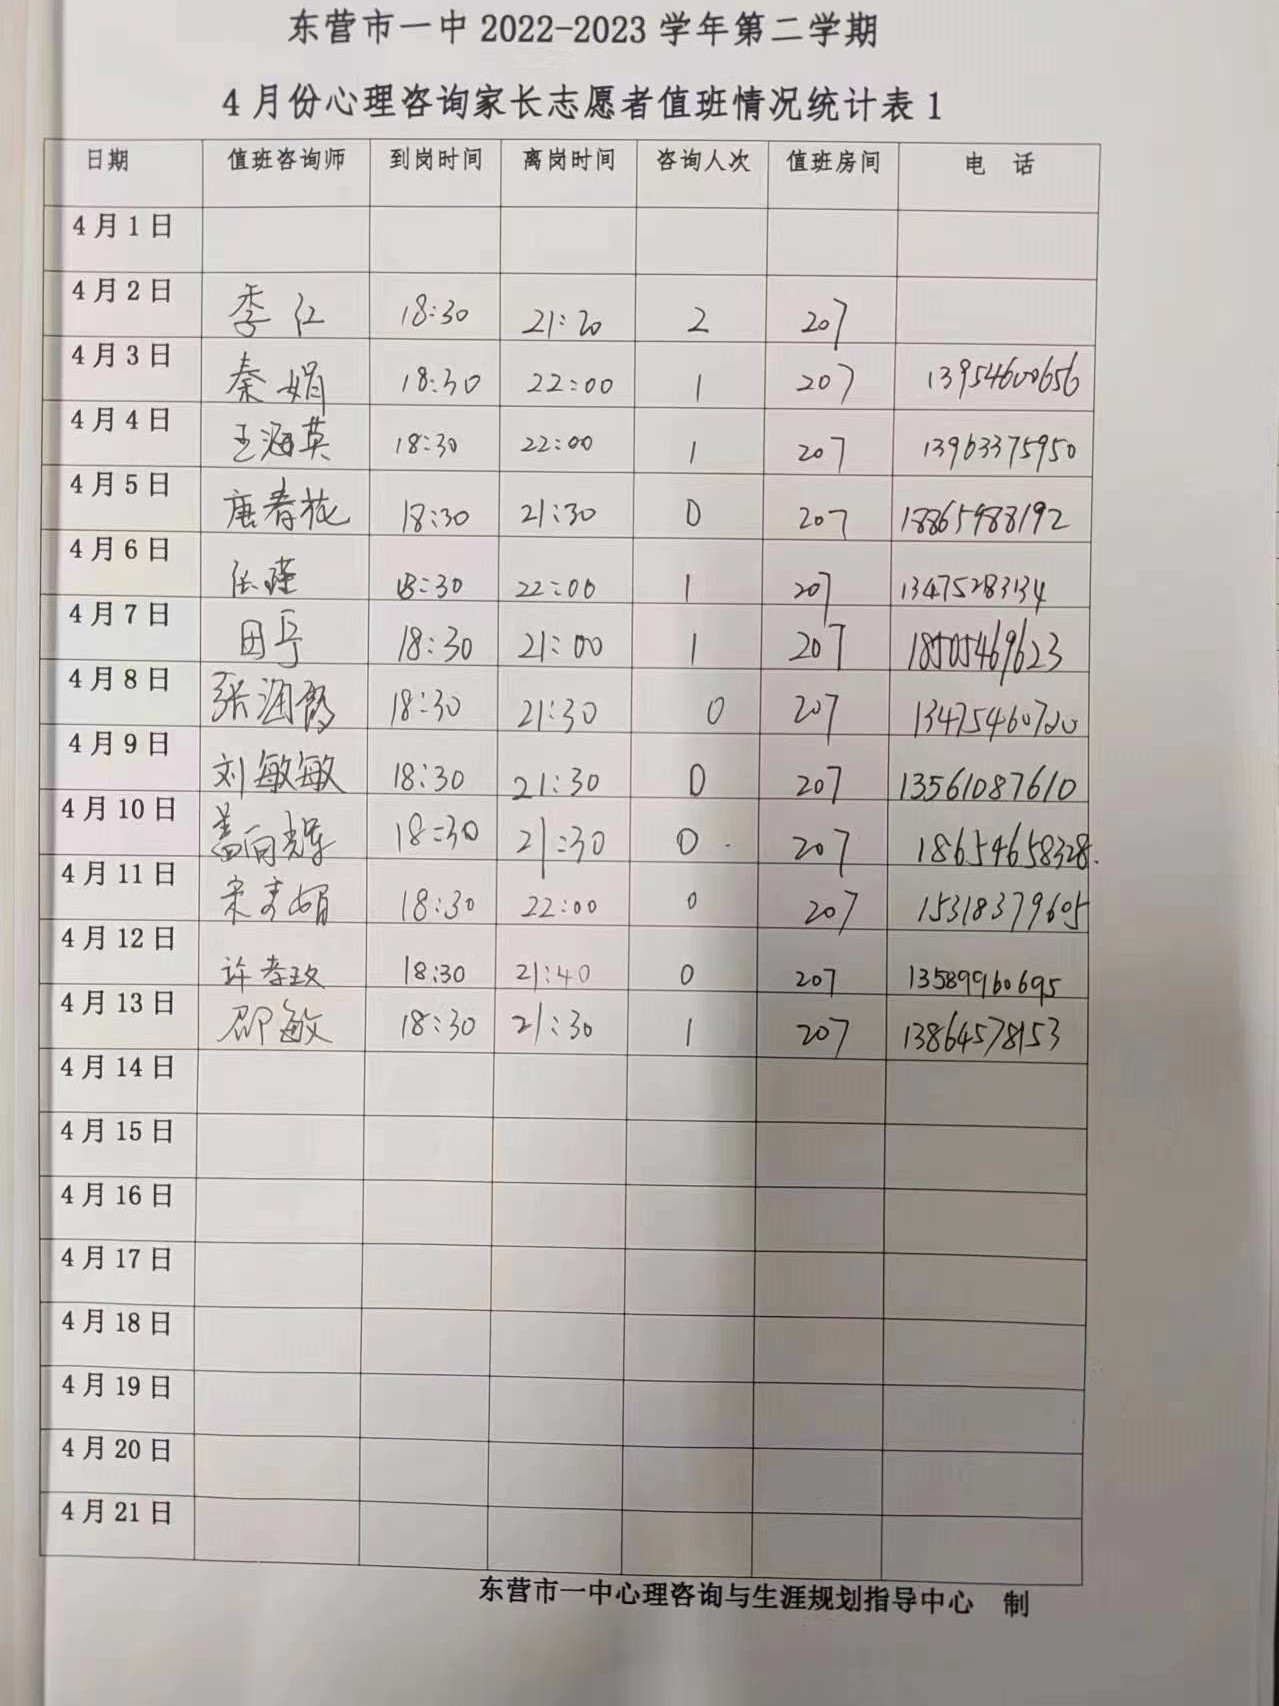 东营市一中 2022-2023 学年第二学期
4 月份心理咨询家长志愿者值班情况统计表 1
日期 值班咨询师 到岗时间 离岗时间 咨询人次 值班房间 电 话
4 月 1 日
4 月 2 日 季红 18:30 21:20 2 207
4 月 3 日 秦娟 18:30 22:00 1 207 13954600656
4 月 4 日 王海英 18:30 22:00 1 207 13963375950
4 月 5 日 唐春花 18:30 21:30 0 207 18865988192
4 月 6 日 张瑾 18:30 22:00 1 207 13475283134
4 月 7 日 田 18:30 21:00 1 207 18505469623
4 月 8 日 张海 18:30 21:30 0 207 13475460720
4 月 9 日 刘敏敏 18:30 21:30 0 207 13561087610
4 月 10 日 盖向辉 18:30 21:30 0 207 18654658328.
4 月 11 日 宋秀娟 18:30 22:00 0 207 15318379605
4 月 12 日 许孝玫 18:30 21:40 0 207 13589960695
4 月 13 日 邵敏 18:30 21:30 1 207 13864578153
4 月 14 日
4 月 15 日
4 月 16 日
4 月 17 日
4 月 18 日
4 月 19 日
4 月 20 日
4 月 21 日
东营市一中心理咨询与生涯规划指导中心 制